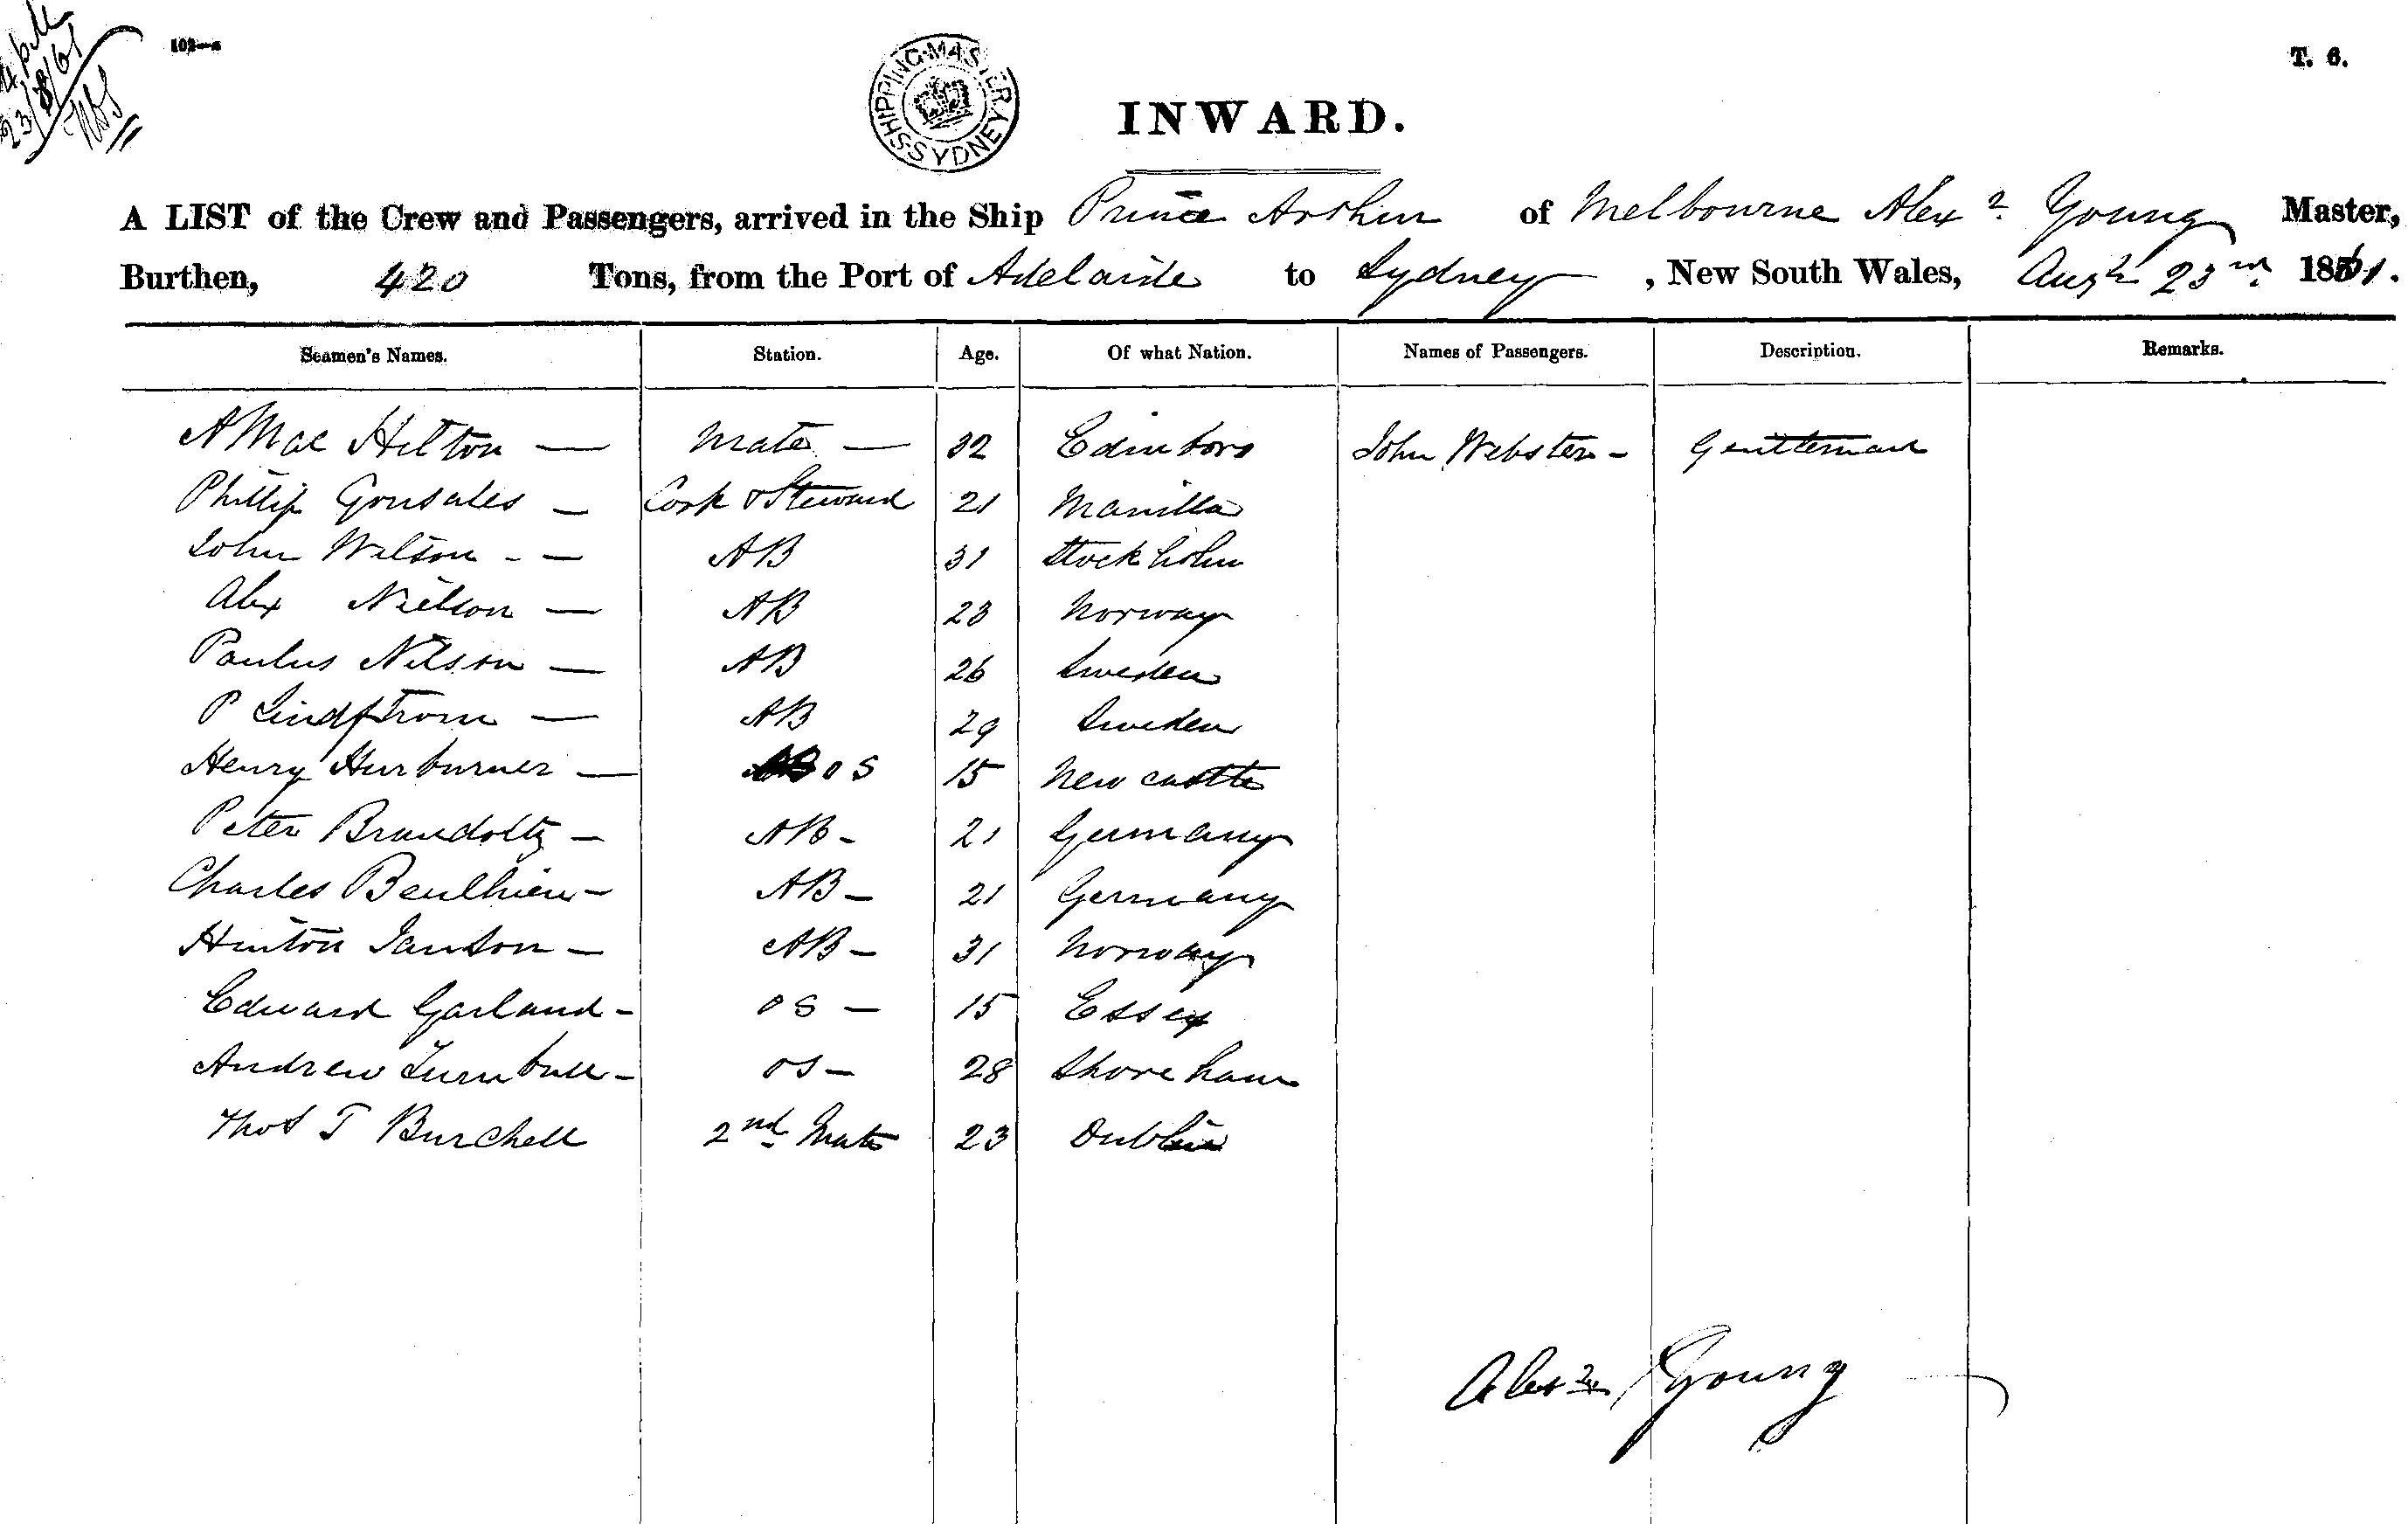 23/8/61
102—a
SHIPPING MASTERS SYDNEY
T. 6.
INWARD.
A LIST of the Crew and Passengers, arrived in the Ship Prince Arthur of Melbourne Alexr Young Master,
Burthen, 420 Tons, from the Port of Adelaide to Sydney, New South Wales, Augt 23rd 1861.
Seamen's Names. Station. Age. Of what Nation. Names of Passengers. Description. Remarks.
A Mac Hilton — Mate — 32 Edinboro John Webster - Gentleman
Phillip Gonsales — Cook & Steward 21 Manilla
John Wilson - — AB 31 Stockholm
Alex Nielson — AB 23 Norway
Paulus Nilson — AB 26 Sweden
P Lindstrom — AB 29 Sweden
Henry Hurburner — OS 15 New castle
Peter Brandoltz — AB - 21 Germany
Charles - AB - 21 Germany
Hinton Janson — AB - 31 Norway
Edward Garland - OS — 15 Essex
Andrew Turnbull - OS — 28 Shoreham
Thos T Burchell 2nd Mate 23 Dublin
Alexr Young